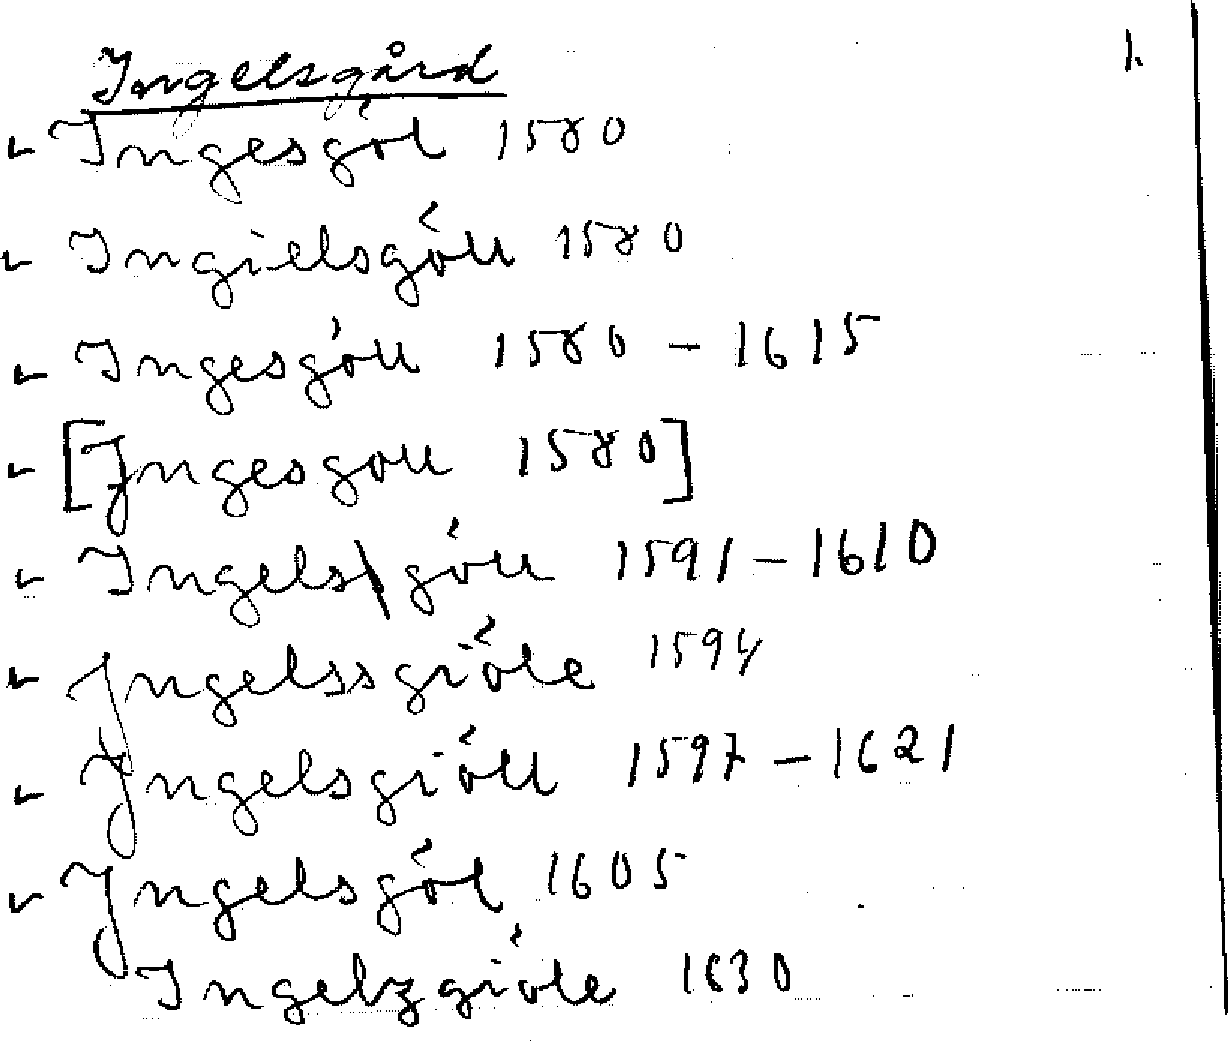 1.
Ingelsgård
Ingesgöl 1580
Ingielsgöll 1580
Ingesgöll 1580 – 1615
[Jngesgoll 1580]
Ingels\göll 1591 – 1610
Jngelssgiöle 1594
Jngelsgiöll 1597 – 1621
Jngelsgöl 1605
Ingelzgiöle 1630